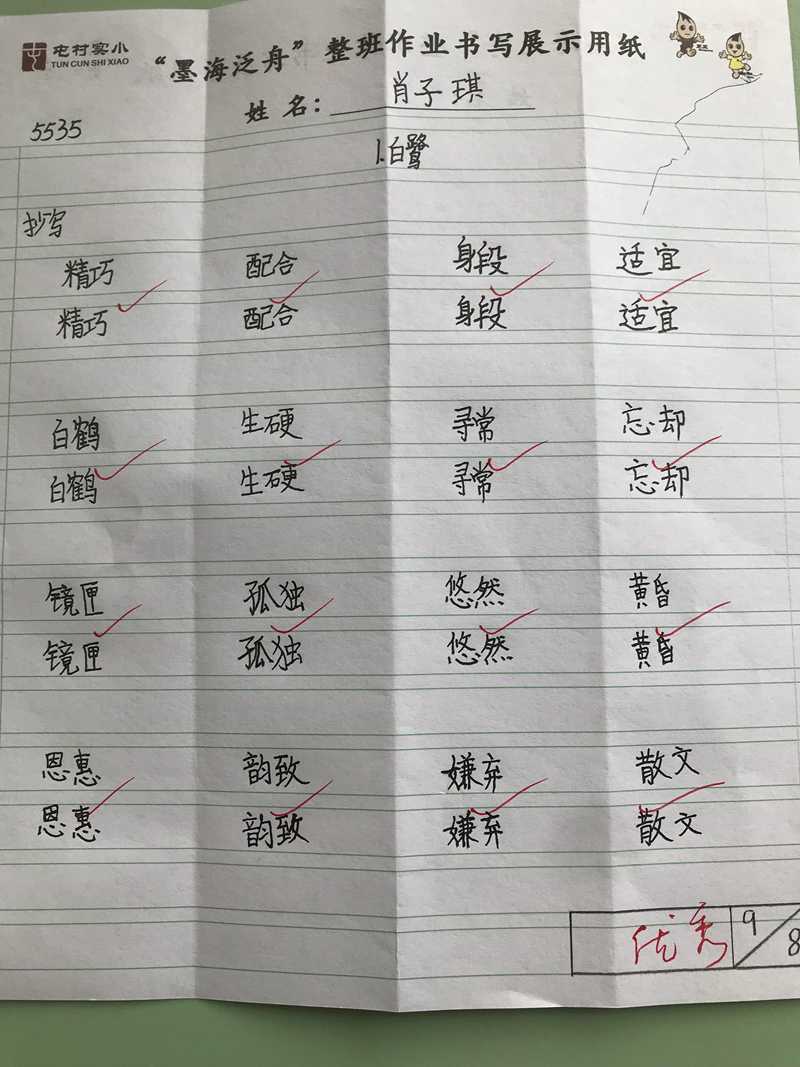 屯村实小
TUN CUN SHI XIAO
“墨海泛舟”整班作业书写展示用纸
姓名：肖子琪
5535
1.白鹭
抄写
精巧 配合 身段 适宜
精巧 配合 身段 适宜
白鹤 生硬 寻常 忘却
白鹤 生硬 寻常 忘却
镜匣 孤独 悠然 黄昏
镜匣 孤独 悠然 黄昏
恩惠 韵致 嫌弃 散文
恩惠 韵致 嫌弃 散文
优秀 9/8